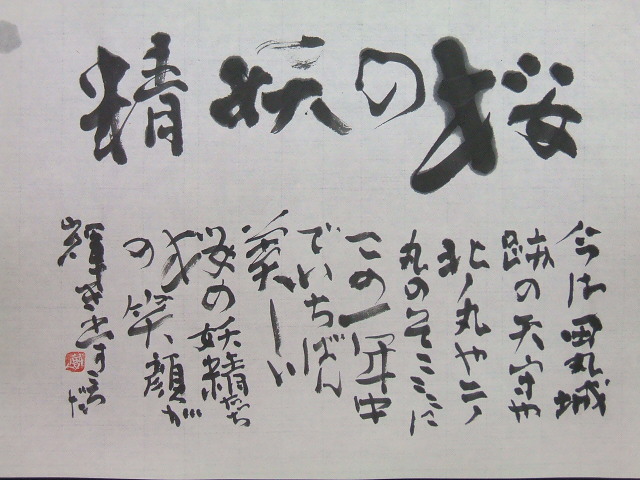 桜の妖精
今は田丸城
跡の天守や
北ノ丸や二ノ
丸のそこここに
この一年中
でいちばん
美しい
桜の妖精たち
の笑顔が
輝き出すころだ